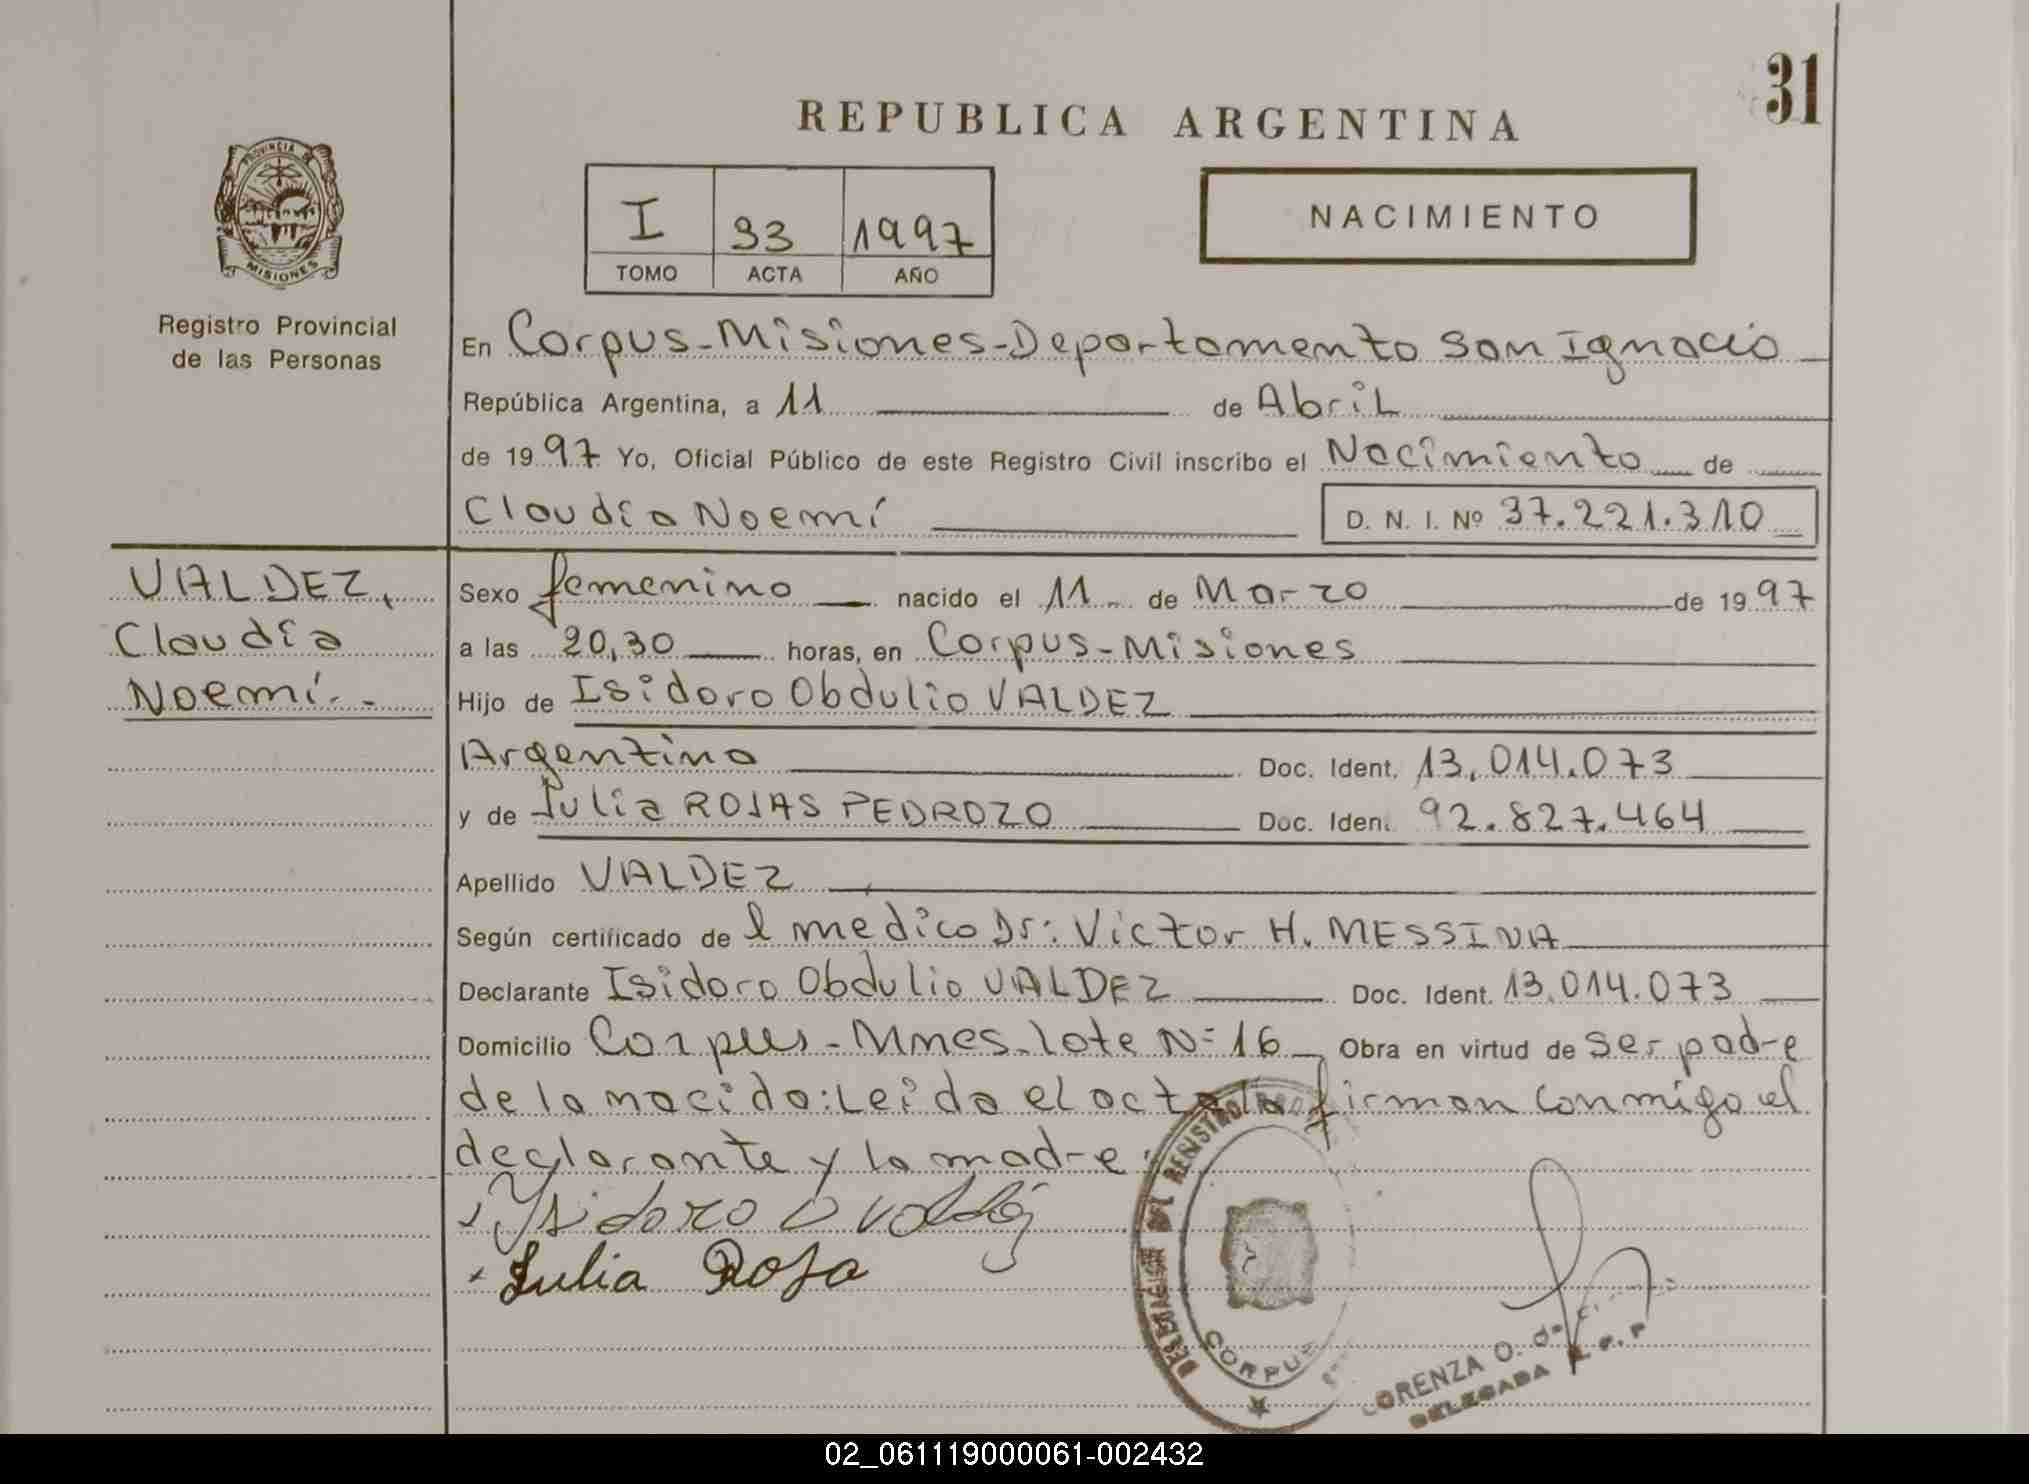 31
REPUBLICA ARGENTINA
PROVINCIA DE
MISIONES
I 33 1997
TOMO ACTA AÑO
NACIMIENTO
Registro Provincial
de las Personas
En Corpus-Misiones-Departamento San Ignacio
República Argentina, a 11 de Abril
de 1997 Yo, Oficial Público de este Registro Civil inscribo el Nacimiento de
Claudia Noemí D. N. I. Nº 37.221.310
VALDEZ,
Claudia
Noemí.-
Sexo femenino nacido el 11 de Marzo de 1997
a las 20,30 horas, en Corpus-Misiones
Hijo de Isidoro Obdulio VALDEZ
Argentino Doc. Ident. 13.014.073
y de Julia ROJAS PEDROZO Doc. Iden. 92.827.464
Apellido VALDEZ
Según certificado de l medico Dr: Victor H. MESSINA
Declarante Isidoro Obdulio VALDEZ Doc. Ident. 13.014.073
Domicilio Corpus-Mnes-lote Nº 16 Obra en virtud de ser padre
de la nacida: Leida el acta la firman conmigo el
declarante y la madre.
Ysidoro O Valdéz
Julia Roja
DELEGACION DEL REGISTRO
CORPUS
LORENZA O. de
DELEGADA R. P. P
02_061119000061-002432